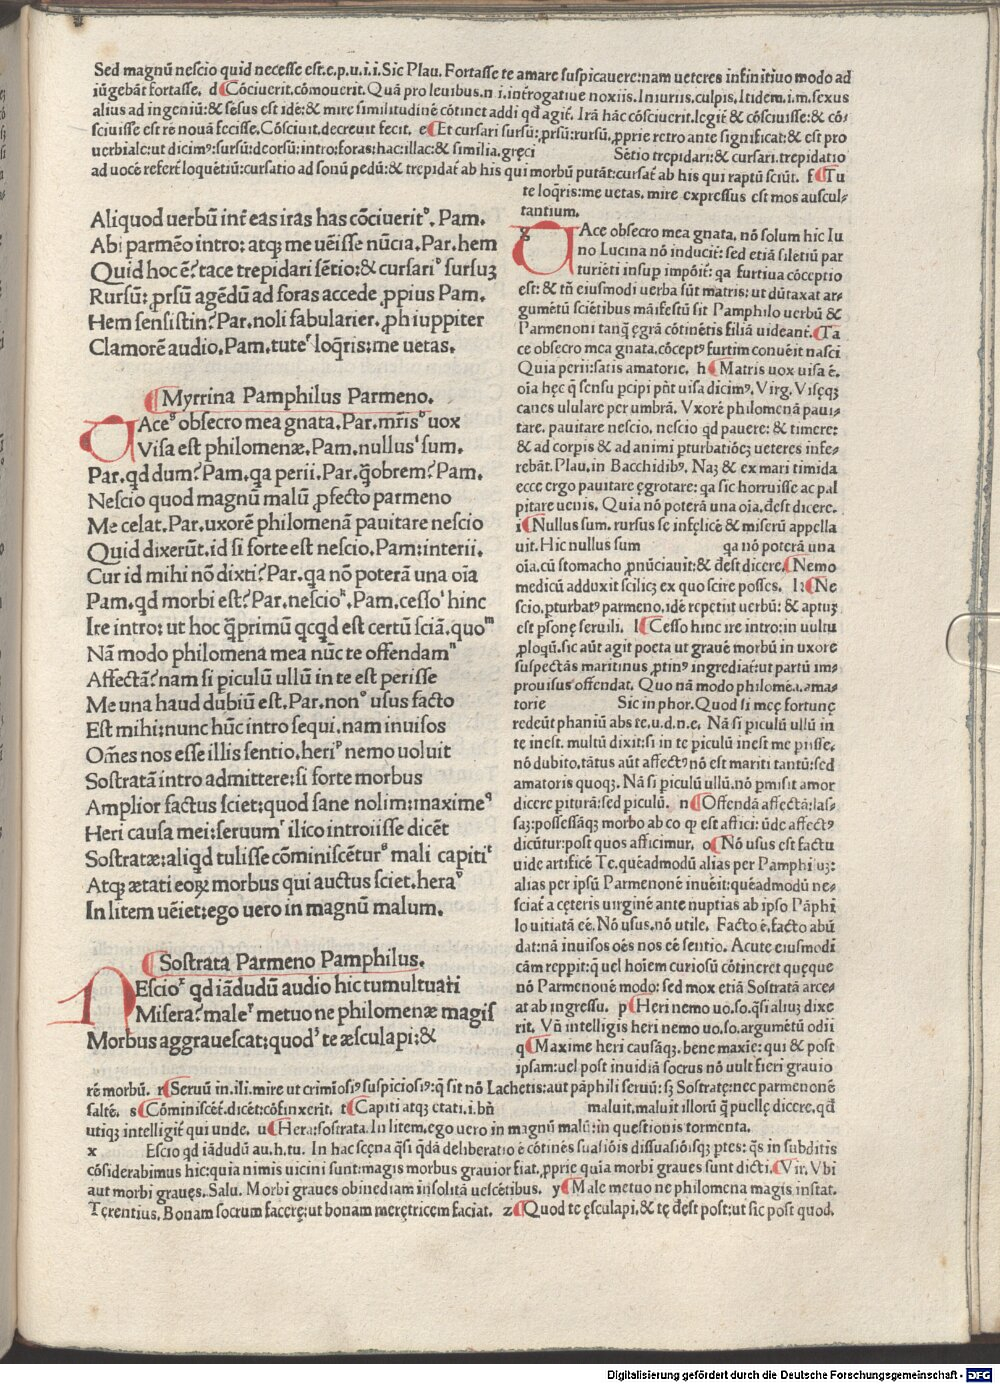 Sed magnū nescio quid necesse est.e.p.u.i.i.Sic Plau.Fortasse te amare suspicauere:nam ueteres infinitiuo modo ad
iūgebāt fortasse. d Cōciuerit.cōmouerit.Quā pro leuibus.n i.introgatiue noxiis.Iniuriis.culpis.Itidem.i.m.sexus
alius ad ingeniū:& sēsus est idē:& mire similitudinē cōtinet addi qd̄ agit̄. Irā hāc cōsciuerit.legit̄ & cōsciuisse:& cō-
sciuisse est rē nouā fecisse.Cōsciuit.decreuit fecit. e Et cursari sursū:ꝓrsū:rursū,ꝓprie retro ante significat:& est pro
uerbiale:ut dicimꝰ:sursū:deorsū:intro:foras:hac:illac:& similia.gręci Sētio trepidari:& cursari.trepidatio
ad uocē refert̄ loquētiū:cursatio ad sonū pedū:& trepidat̄ ab his qui morbū putāt:cursat̄ ab his qui raptū sciūt. f Tu
te loq̄ris:me uetas. mire expressus est mos auscul-
tantium.
Aliquod uerbū int̄ eas iras has cōciuerit. Pam.
Abi parmēo intro: atqȝ me uēisse nūcia. Par.hem
Quid hoc ē? tace trepidari sētio:& cursari sursuȝ
Rursū: ꝓrsū agēdū ad foras accede ꝓpius Pam.
Hem sensistin? Par.noli fabularier. ꝓh iuppiter
Clamorē audio.Pam.tute loq̄ris:me uetas.
Myrrina Pamphilus Parmeno.
TAce obsecro mea gnata.Par.mr̄is uox
Visa est philomenæ.Pam.nullus sum.
Par.qd dum? Pam.qa perii.Par.q̄obrem? Pam.
Nescio quod magnū malū ꝓfecto parmeno
Me celat.Par.uxorē philomenā pauitare nescio
Quid dixerūt.id si forte est nescio.Pam:interii.
Cur id mihi nō dixti? Par.qa nō poterā una oīa
Pam.qd morbi est? Par.nescio.Pam.cesso hinc
Ire intro: ut hoc q̄primū qcqd est certū sciā.quo
Nā modo philomena mea nūc te offendam
Affectā? nam si piculū ullū in te est perisse
Me una haud dubiū est.Par.non usus facto
Est mihi:nunc hūc intro sequi.nam inuisos
Om̄es nos esse illis sentio.heri nemo uoluit
Sostratā intro admittere:si forte morbus
Amplior factus sciet:quod sane nolim:maxime
Heri causa mei:seruum ilico introiisse dicēt
Sostratæ:aliqd tulisse cōminiscētur mali capiti
Atqȝ ætati eoꝝ morbus qui auctus sciet.hera
In litem uēiet:ego uero in magnū malum.
Sostrata Parmeno Pamphilus.
NEscio qd iādudū audio hic tumultuari
Misera? male metuo ne philomenæ magis
Morbus aggrauescat:quod te æsculapi:&
g TAce obsecro mea gnata. nō solum hic Iu
no Lucina nō inducit̄: sed etiā silētiū par
turiēti insup impōit̄: qa furtiua cōceptio
est: & tn̄ eiusmodi uerba sūt matris: ut dūtaxat ar-
gumētū sciētibus māifestū sit Pamphilo uerbū &
Parmenoni tanq̄ ęgrā cōtinētis filiā uideant̄. Ta
ce obsecro mea gnata.cōceptꝰ furtim conuēit nasci
Quia perii:satis amatorie. h Matris uox uisa ē.
oīa hęc q̄ sensu pcipi pn̄t uisa dicimꝰ. Virg. Visęqȝ
canes ululare per umbrā. Vxorē philomenā paui-
tare. pauitare nescio, nescio qd pauere: & timere:
& ad corpis & ad animi pturbatiōeȝ ueteres infe-
rebāt. Plau.in Bacchidibꝰ. Naȝ & ex mari timida
ecce ergo pauitare ęgrotare: qa sic horruisse ac pal
pitare uenis. Quia nō poterā una oīa.d̄est dicere.
i Nullus sum. rursus se infęlicē & miserū appella
uit. Hic nullus sum qa nō poterā una
oīa.cū stomacho ꝓnūciauit: & d̄est dicere. Nemo
medicū adduxit scilicȝ ex quo scire posses. k Ne
scio.pturbatꝰ parmeno.idē repetiit uerbū: & aptuȝ
est psonę seruili. l Cesso hinc ire intro:in uultu
ploqū.sic aūt agit poeta ut grauē morbū in uxore
suspectās maritinus ꝓtinꝰ ingrediat̄:ut partū im-
prouisus offendat. Quo nā modo philomēa.ama-
torie Sic in phor.Quod si meę fortunę
redeūt phaniū abs te.u.d.n.e. Nā si piculū ullū in
te inest. multū dixit:si in te piculū inest me piisse.
nō dubito.tātus aūt affectꝰ nō est mariti tantū:sed
amatoris quoqȝ. Nā si piculū ullū.nō pmisit amor
dicere piturā:sed piculū. n Offendā affectā:las-
saȝ:possessāqȝ morbo ab eo qꝫ est affici: ūde affectꝰ
dicūtur:post quos afficimur. o Nō usus est factu
uide artificē Te.quēadmodū alias per Pamphi uȝ:
alias per ipsū Parmenonē inuēit:quēadmodū ne-
sciat̄ a cęteris uirginē ante nuptias ab ipso Pāphi
lo uitiatā eē. Nō usus.nō utile. Facto ē.facto abū
dat:nā inuisos oēs nos eē sentio. Acute eiusmodi
cām reppit:q̄ uel hoīem curiosū cōtineret quęque
nō Parmenonē modo: sed mox etiā Sostratā arce-
at ab ingressu. p Heri nemo uo.so.q̄si aliuȝ dixe
rit. Vn̄ intelligis heri nemo uo.so.argumētū odii
q Maxime heri causāqȝ. bene maxīe: qui & post
ipsam:uel post inuidiā socrus nō uult fieri grauio
rē morbū. r Seruū in.ili.mire ut crimiosiꝰ suspiciosiꝰ:q̄ sit nō Lachetis:aut pāphili seruū: sȝ Sostratę:nec parmenonē
saltē. s Cōminiscēt̄.dicēt:cōfinxerit. t Capiti atqȝ ętati.i.bn̄ maluit.maluit illorū q̄ puellę dicere.qd̄
utiqȝ intelligit̄ qui unde. u Hera:sostrata.In litem.ego uero in magnū malū:in questionis tormenta.
x Escio qd iādudū au.h.tu. In hac scęna q̄si q̄dā deliberatio ē cōtinēs suasiōis dissuasiōisqȝ ptes: q̄s in subditis
cōsiderabimus hic:quia nimis uicini sunt:magis morbus grauior fiat.ꝓprie quia morbi graues sunt dicti. Vir.Vbi
aut morbi grauęs. Salu. Morbi graues obinediam insolitā uescētibus. y Male metuo ne philomena magis.instat.
Tęrentius.Bonam socrum facerę:ut bonam meręt̄ricem faciat. z Quod te ęsculapi.& tę d̄est post:ut sic post quod.
Digitalisierung gefördert durch die Deutsche Forschungsgemeinschaft - DFG